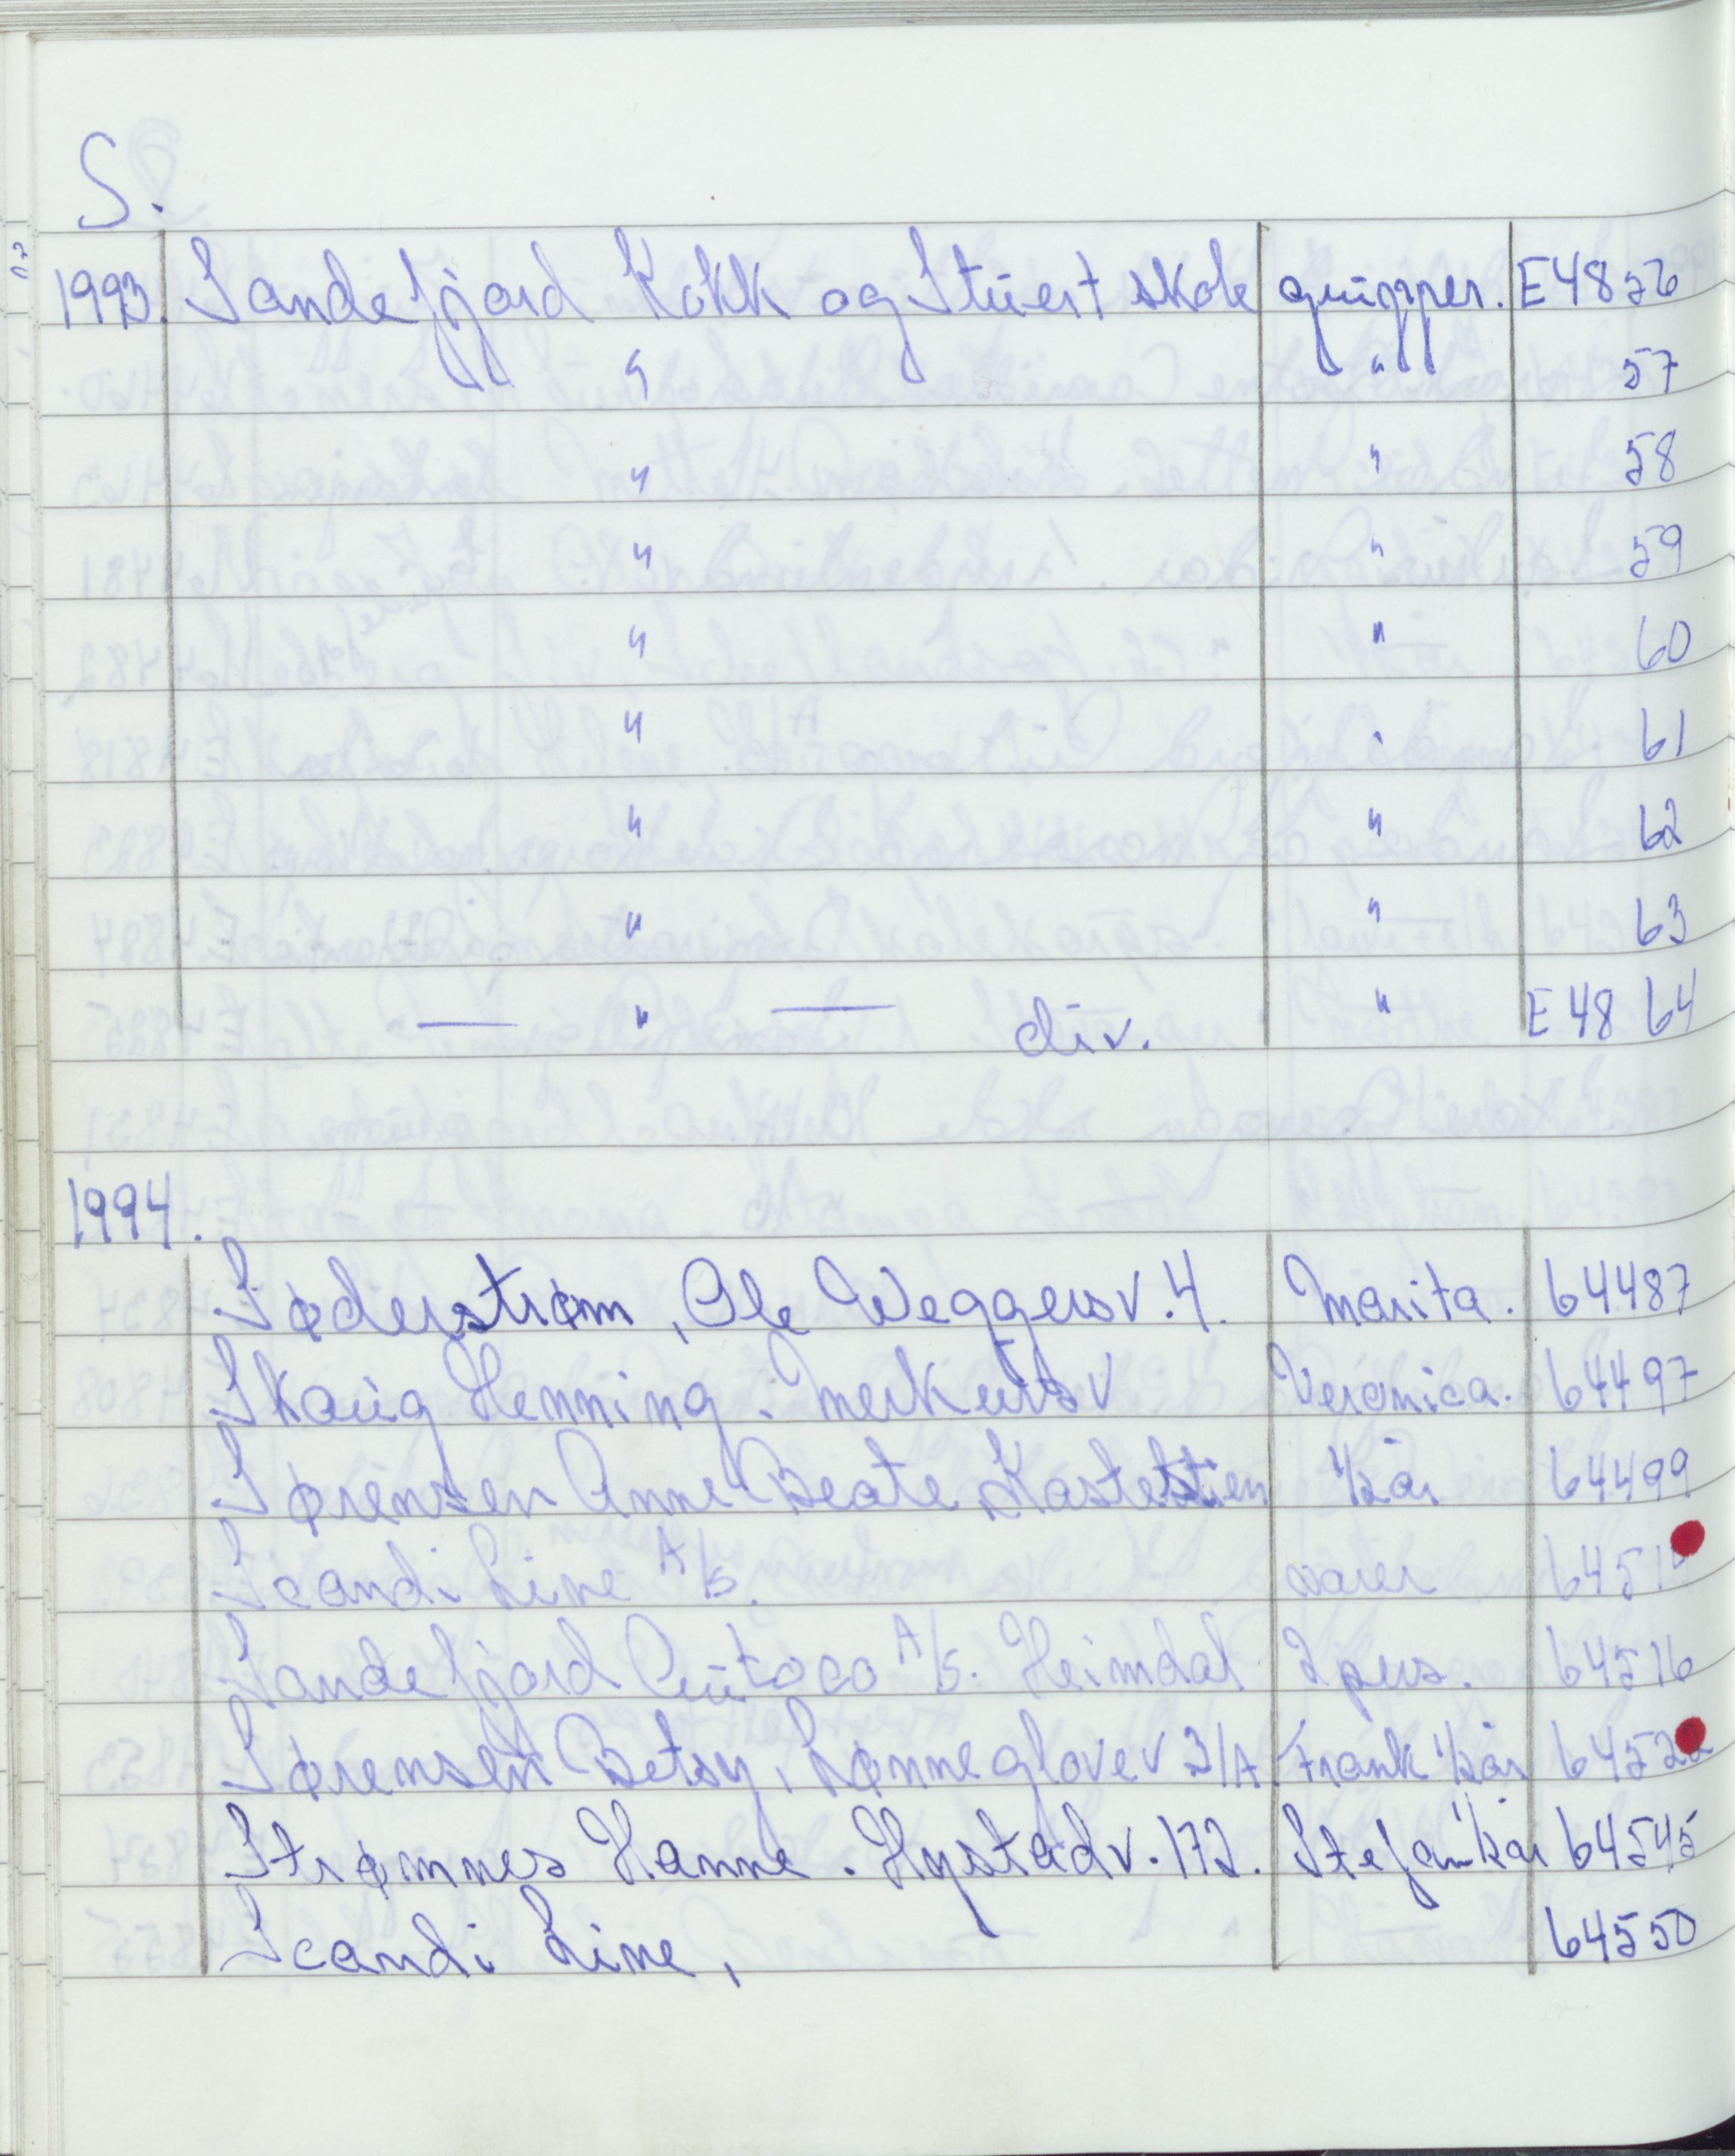 S.
1993. Sandefjord Kokk og Stuert skole grupper. E4856
" " 57
" " 58
" " 59
" " 60
" " 61
" " 62
" " 63
— " — div. " E48 64
1994.
Søderstrøm, Ole Weggersv. 4. Marita. 64487
Skaug Henning. Merkursv Veronica. 64497
Sørensen Anne Beate Kastetstien 1/2 år 64499
Scandi Line A/s. varer
Sandefjord Autoco A/s. Heimdal 2 pers. 64516
Sørensen Betsy, Lønneglovev 3/A Frank 1/2 år 64522
Strømnes Hanne. Hystadv. 172. Stefan 1/2 år 64545
Scandi Line, 64550